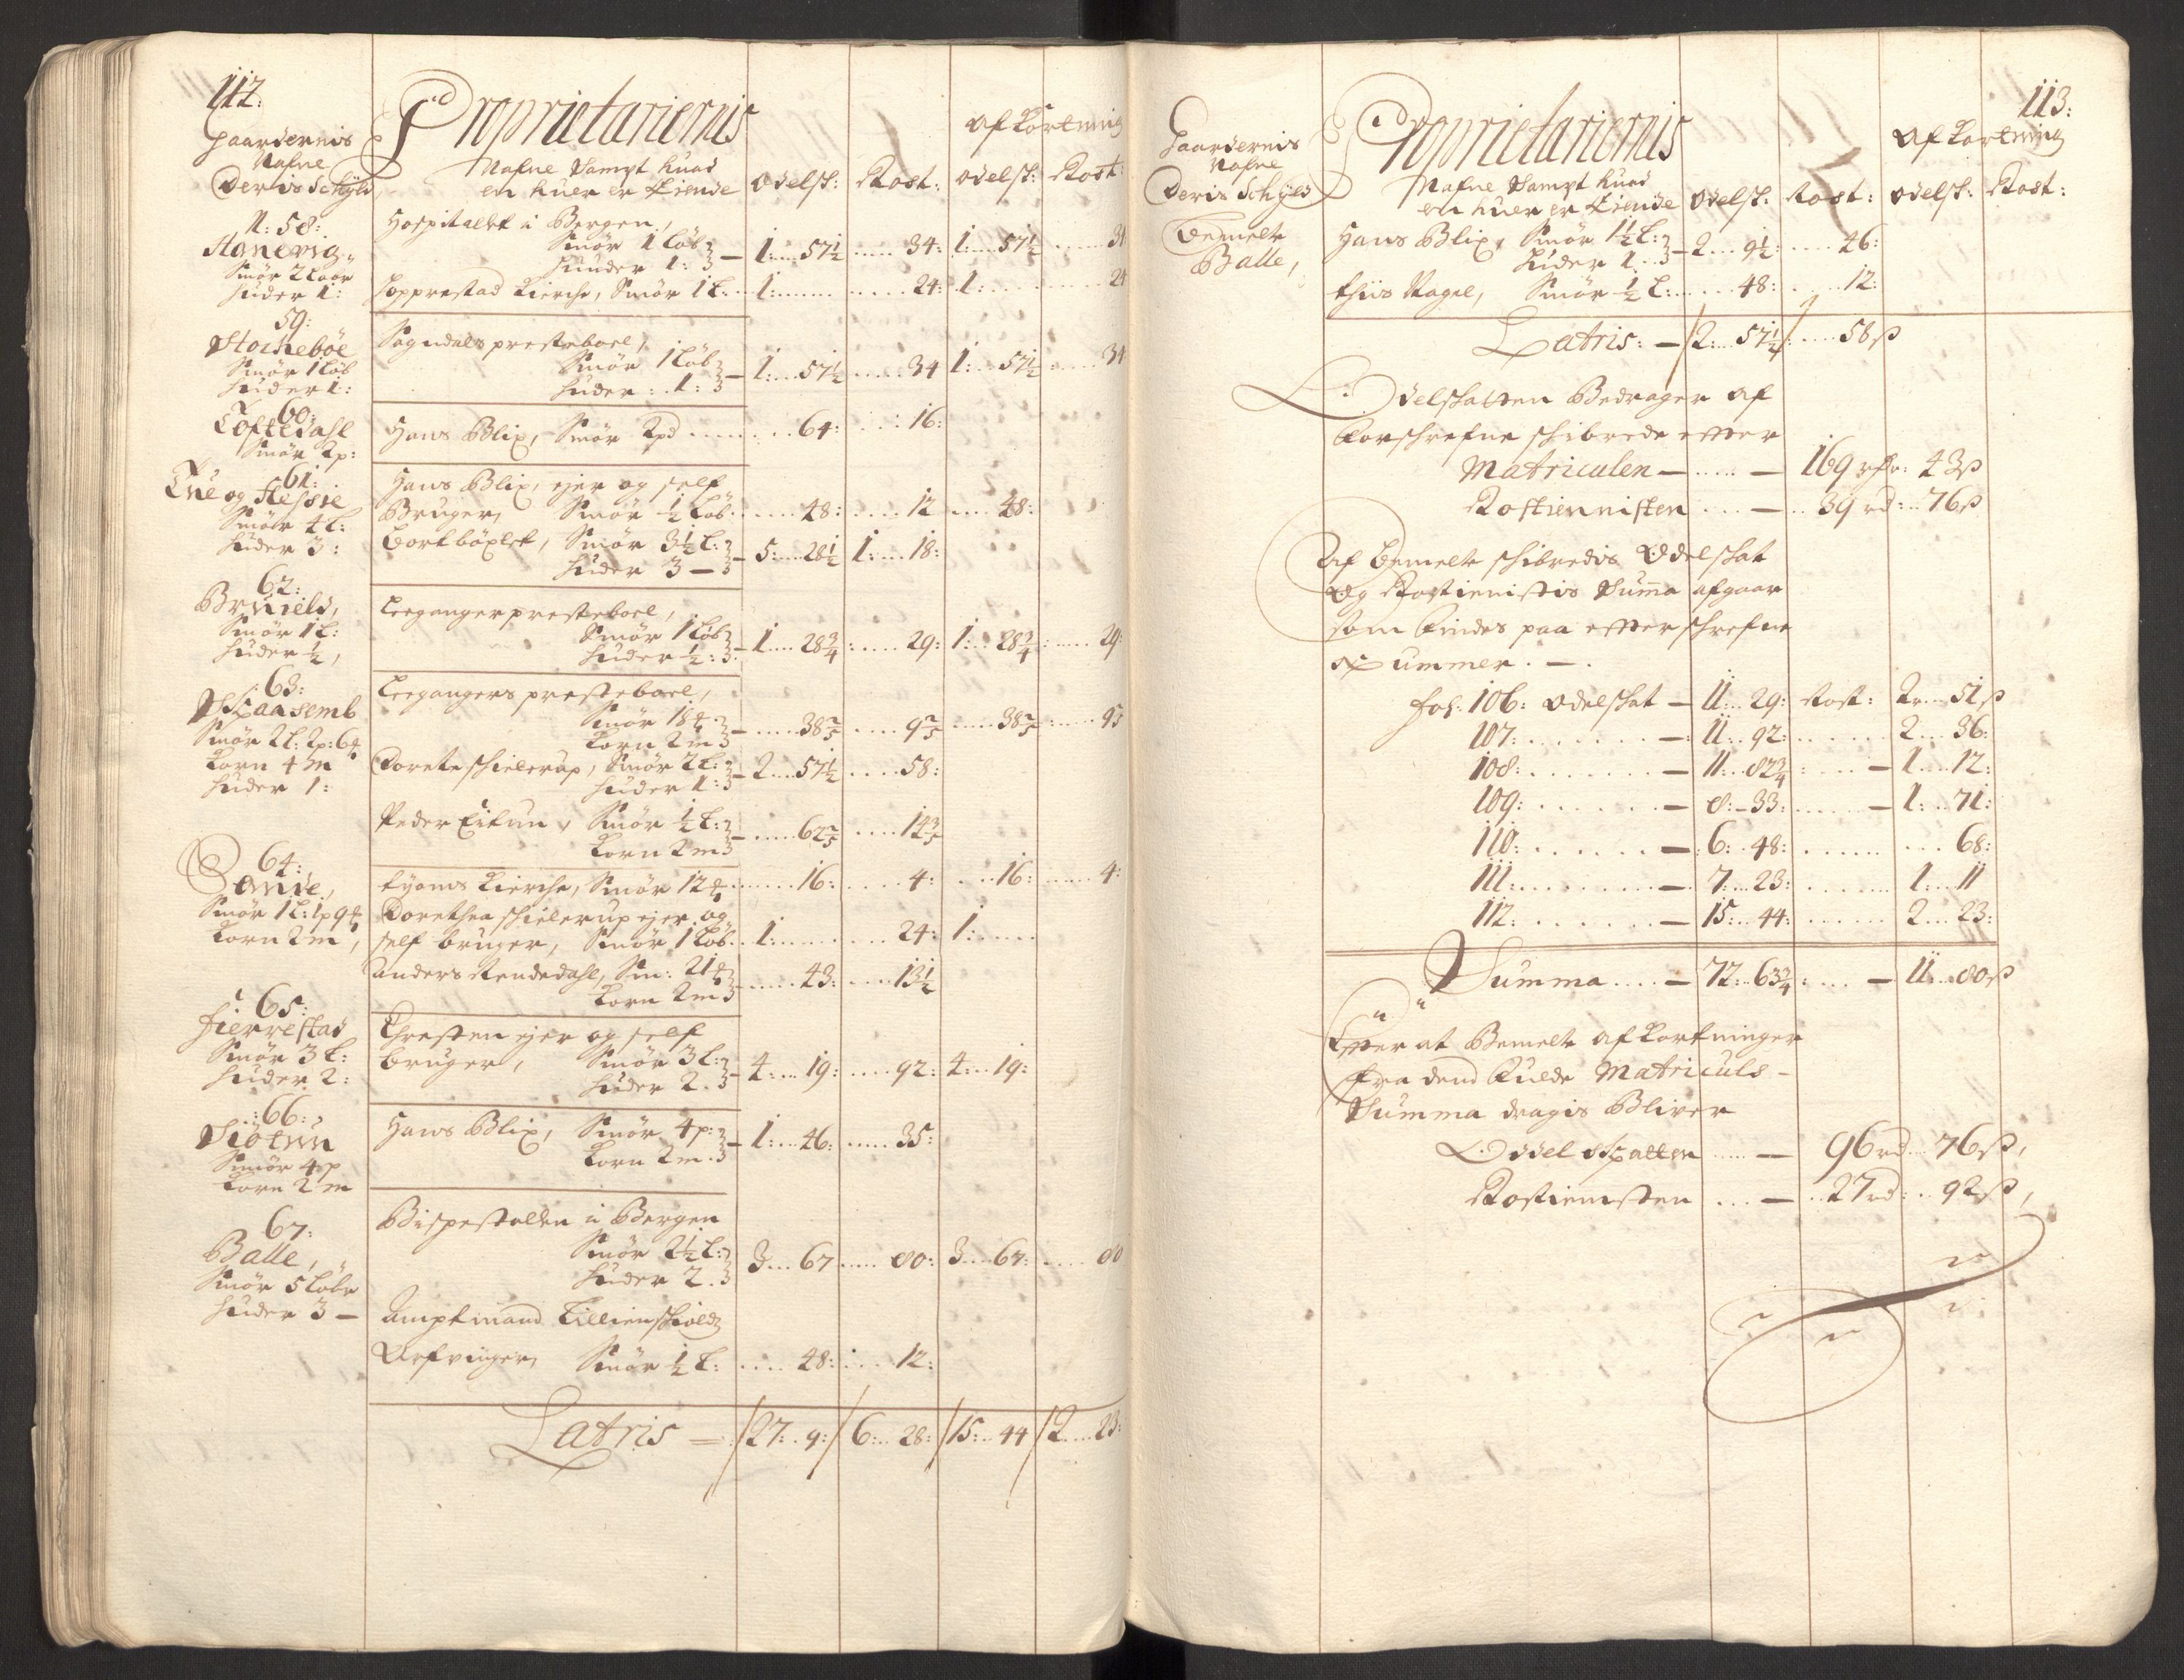 112:
Gaardernis
Nafne
Deris Schyld,
Proprietariernis
Nafne Sampt huad
en huer er Eiende
Odelsk:
Rost:
Afkortning
Odelsk:
Rost:
N: 58:
Smør 2 Løber
Huder 1:
Hospitalet i Bergen,
Smør 1 Løb
Huuder 1: — 1: .... 57½ ...... 34: 1: .... 57½ ...... 34
Kierche, Smør 1 L: 1: ...... 24: 1: ...... 24
59:
Stochebøe
Smør 1 Løb
Huder 1:
Sogndals presteboel,
Smør 1 Løb
Huder: 1: — 1: .... 57½ ...... 34 1: ... 57½ ...... 34
60:
Loftesdahl
Smør 2 p:
Hans Blix, Smør 2 pd ...... 64: .... 16:
61:
og Flessie
Smør 4 L:
Huder 3:
Hans Blix, ejer og self
Bruger, Smør ½ Løb ..... 48: .... 12 .... 48:
Bortbøxlet, Smør 3½ L:
Huder 3 — 5: .... 28½ 1: .... 18:
62:
Smør 1 L:
Huder ½,
Leeganger presteboel,
Smør 1 Løb
Huder ½: — 1 .... 28¾ ..... 29: 1: ... 28¾ ..... 29:
63:
Smør 2 L: 2p: 6
Korn 4 m
Huder 1:
Leegangers presteboel,
Smør 18
Korn 2 m — ..... 38⅖ .... 9⅗ .... 38⅖ ....
Dorete Schielerup, Smør 2 L:
Huder 1: — 2 ... 57½ .... 58:
Peder Eitun, Smør ½ L:
Korn 2 m — ..... 62⅖ .... 14⅗
64:
Smør 1 L: 1 p 9
Korn 2 m,
Kierche, Smør 12 ...... 16: .... 4: ... 16: ..... 4:
Dorethea Schielerup ejer og
self bruger, Smør 1 Løb: 1: ...... 24: 1: ....
Anders Rendedahl, Sm: 21
Korn 2 m ..... 43: .... 13½
65:
Fierrestad
Smør 3 L:
Huder 2:
Chresten ejer og self
bruger, Smør 3 L:
Huder 2. 4: ... 19: .... 92: 4: .. 19:
66:
Smør 4 p
Korn 2 m
Hans Blix, Smør 4 p:
Korn 2 m. — 1: ... 46: ..... 35:
67:
Balle,
Smør 5 Løber
Huder 3 —
Bispestollen i Bergen
Smør 2½ L:
Huder 2. 3 ... 67 ..... 80: 3 .... 67: .... 80
Amptmand Lillienschiolds
Arfvinger, Smør ½ L: .... 48: .... 12:
Latris — 27: .. 9: 6: .. 28: 15: .. 44 2 .... 23:
113:
Gaardernis
Nafne
Deris Schyld
Proprietariernis
Nafne Sampt huad
en huer er Eiende
Odelsk:
Rost:
Afkortning
Odelsk:
Rost:
Bemelte
Balle,
Hans Blix, Smør 1½ L:
Huder 1. — 2 ... 9½: .... 46:
Thiis Nagel, Smør ½ L: ..... 48: .... 12:
Latris: — 2: .. 57½: .... 58 ß
Odelskatten Bedrager af
Forschrefne schibrede effter
Matriculen — ..... — 169 rdr: 43 ß
Rostiennisten ... — .. 39 rd: .. 76 ß
Af Bemelte schibredis Odelskat
Og Rostienistis Suma afgaar
som findes paa effterschrefne
Summer. —.
fol: 106: Odelskat — 11: .. 29: Rost: 2 r ... 51 ß
107: ....... — 11 .. 92: ...... 2 ... 36:
108: ....... — 11: .. 82¾: .... — 1 .... 12:
109: ....... — 8: — 33: ..... — 1: .. 71:
110: ....... — 6: .. 48: ...... 68:
111: ....... — 7: ... 23: ...... 1: ... 11
112: ....... — 15: .. 44: ...... 2 .... 23:
Summa .... — 72: .. 63¾: .... — 11 .... 80 ß
Effter at Bemelte Afkortninger
fra dend fulde Matriculs-
Summa dragis Bliver
Odelskatten ..... — 96 rd ... 76 ß,
Rostiensten ... — .. 27 rd: .. 92 ß,